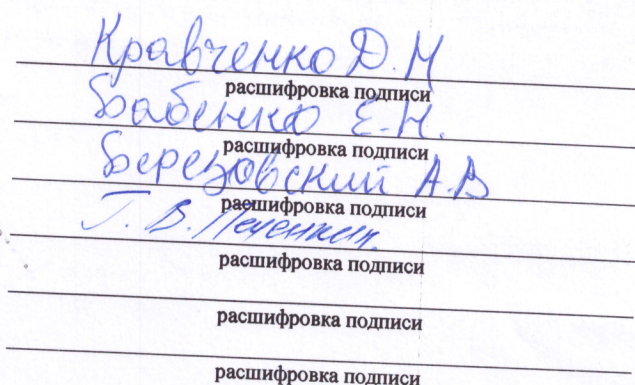 Кравченко Д.Н
расшифровка подписи
Бабенко Е.Н.
расшифровка подписи
Березовский А.В
расшифровка подписи
Г. В. Печенкин.
расшифровка подписи
расшифровка подписи
расшифровка подписи